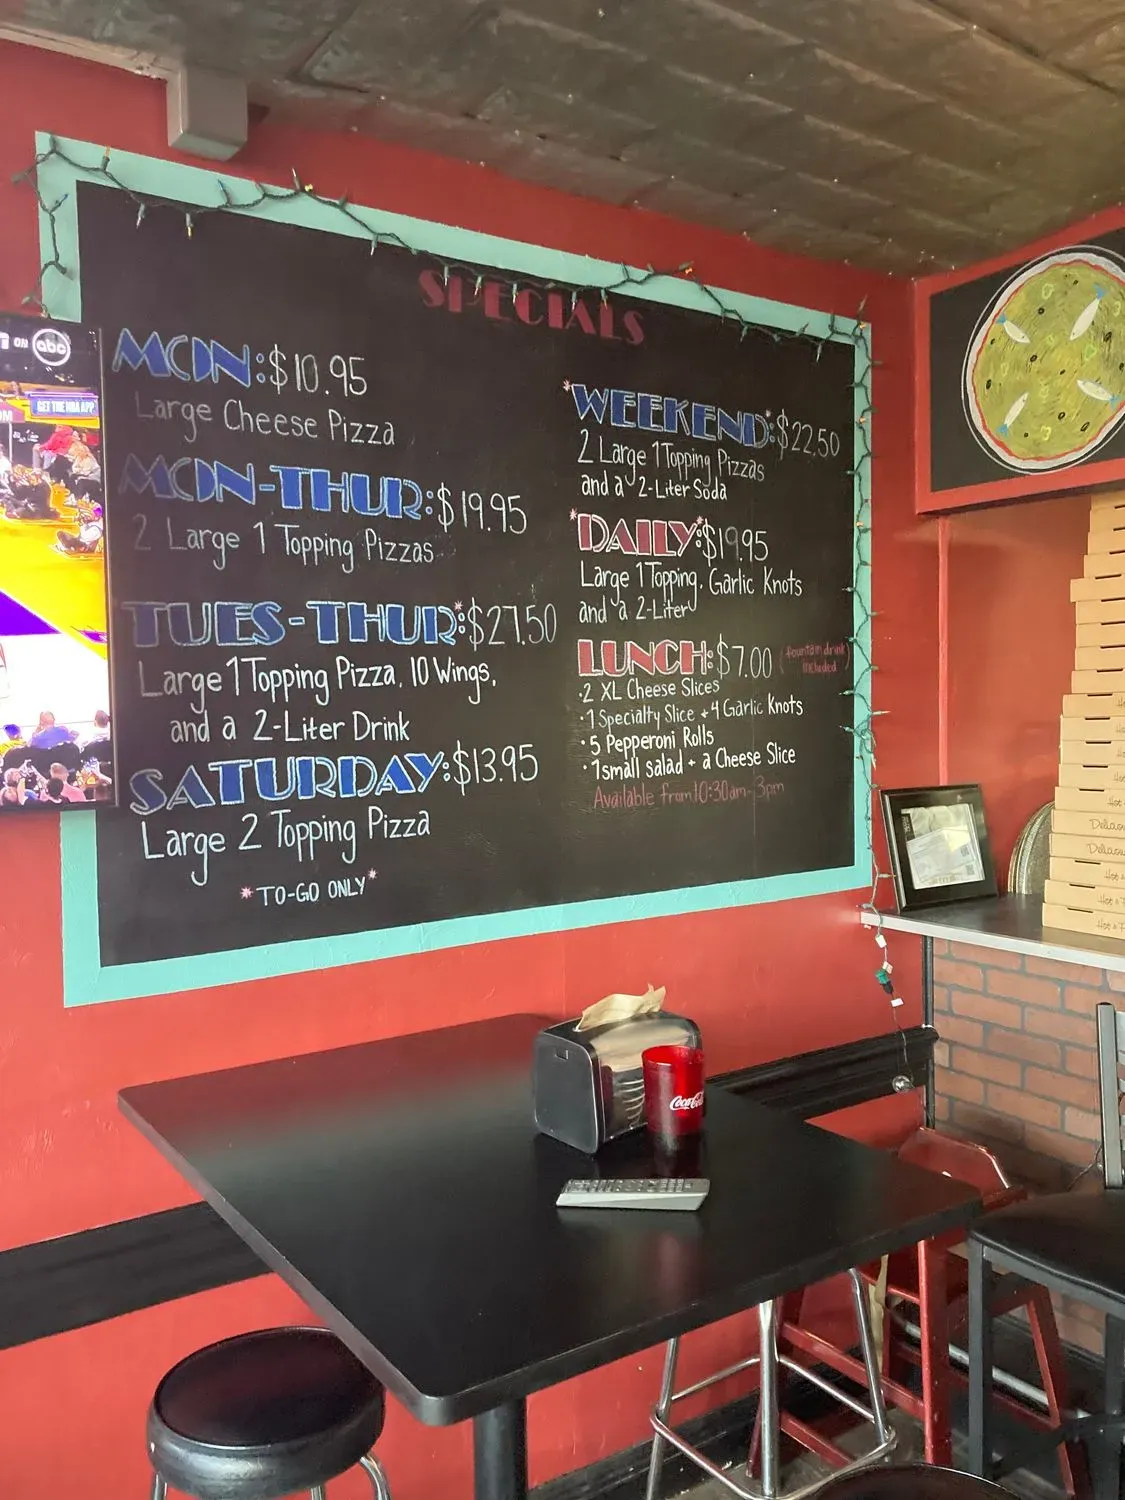 SPECIALS
MON: $10.95
Large Cheese Pizza
MON-THUR: $19.95
2 Large 1 Topping Pizzas
TUES-THUR*: $27.50
Large 1 Topping Pizza, 10 Wings,
and a 2-Liter Drink
SATURDAY: $13.95
Large 2 Topping Pizza
*TO-GO ONLY*
*WEEKEND*: $22.50
2 Large 1 Topping Pizzas
and a 2-Liter Soda
*DAILY*: $19.95
Large 1 Topping, Garlic Knots
and a 2-Liter
LUNCH: $7.00 (fountain drink
included)
·2 XL Cheese Slices
·1 Specialty Slice + 4 Garlic Knots
·5 Pepperoni Rolls
·1 small salad + a Cheese Slice
Available from 10:30am-3pm
ON abc
GET THE NBA APP
Coca-Cola
Hot &
Delicious
Delicious
Hot &
Hot &